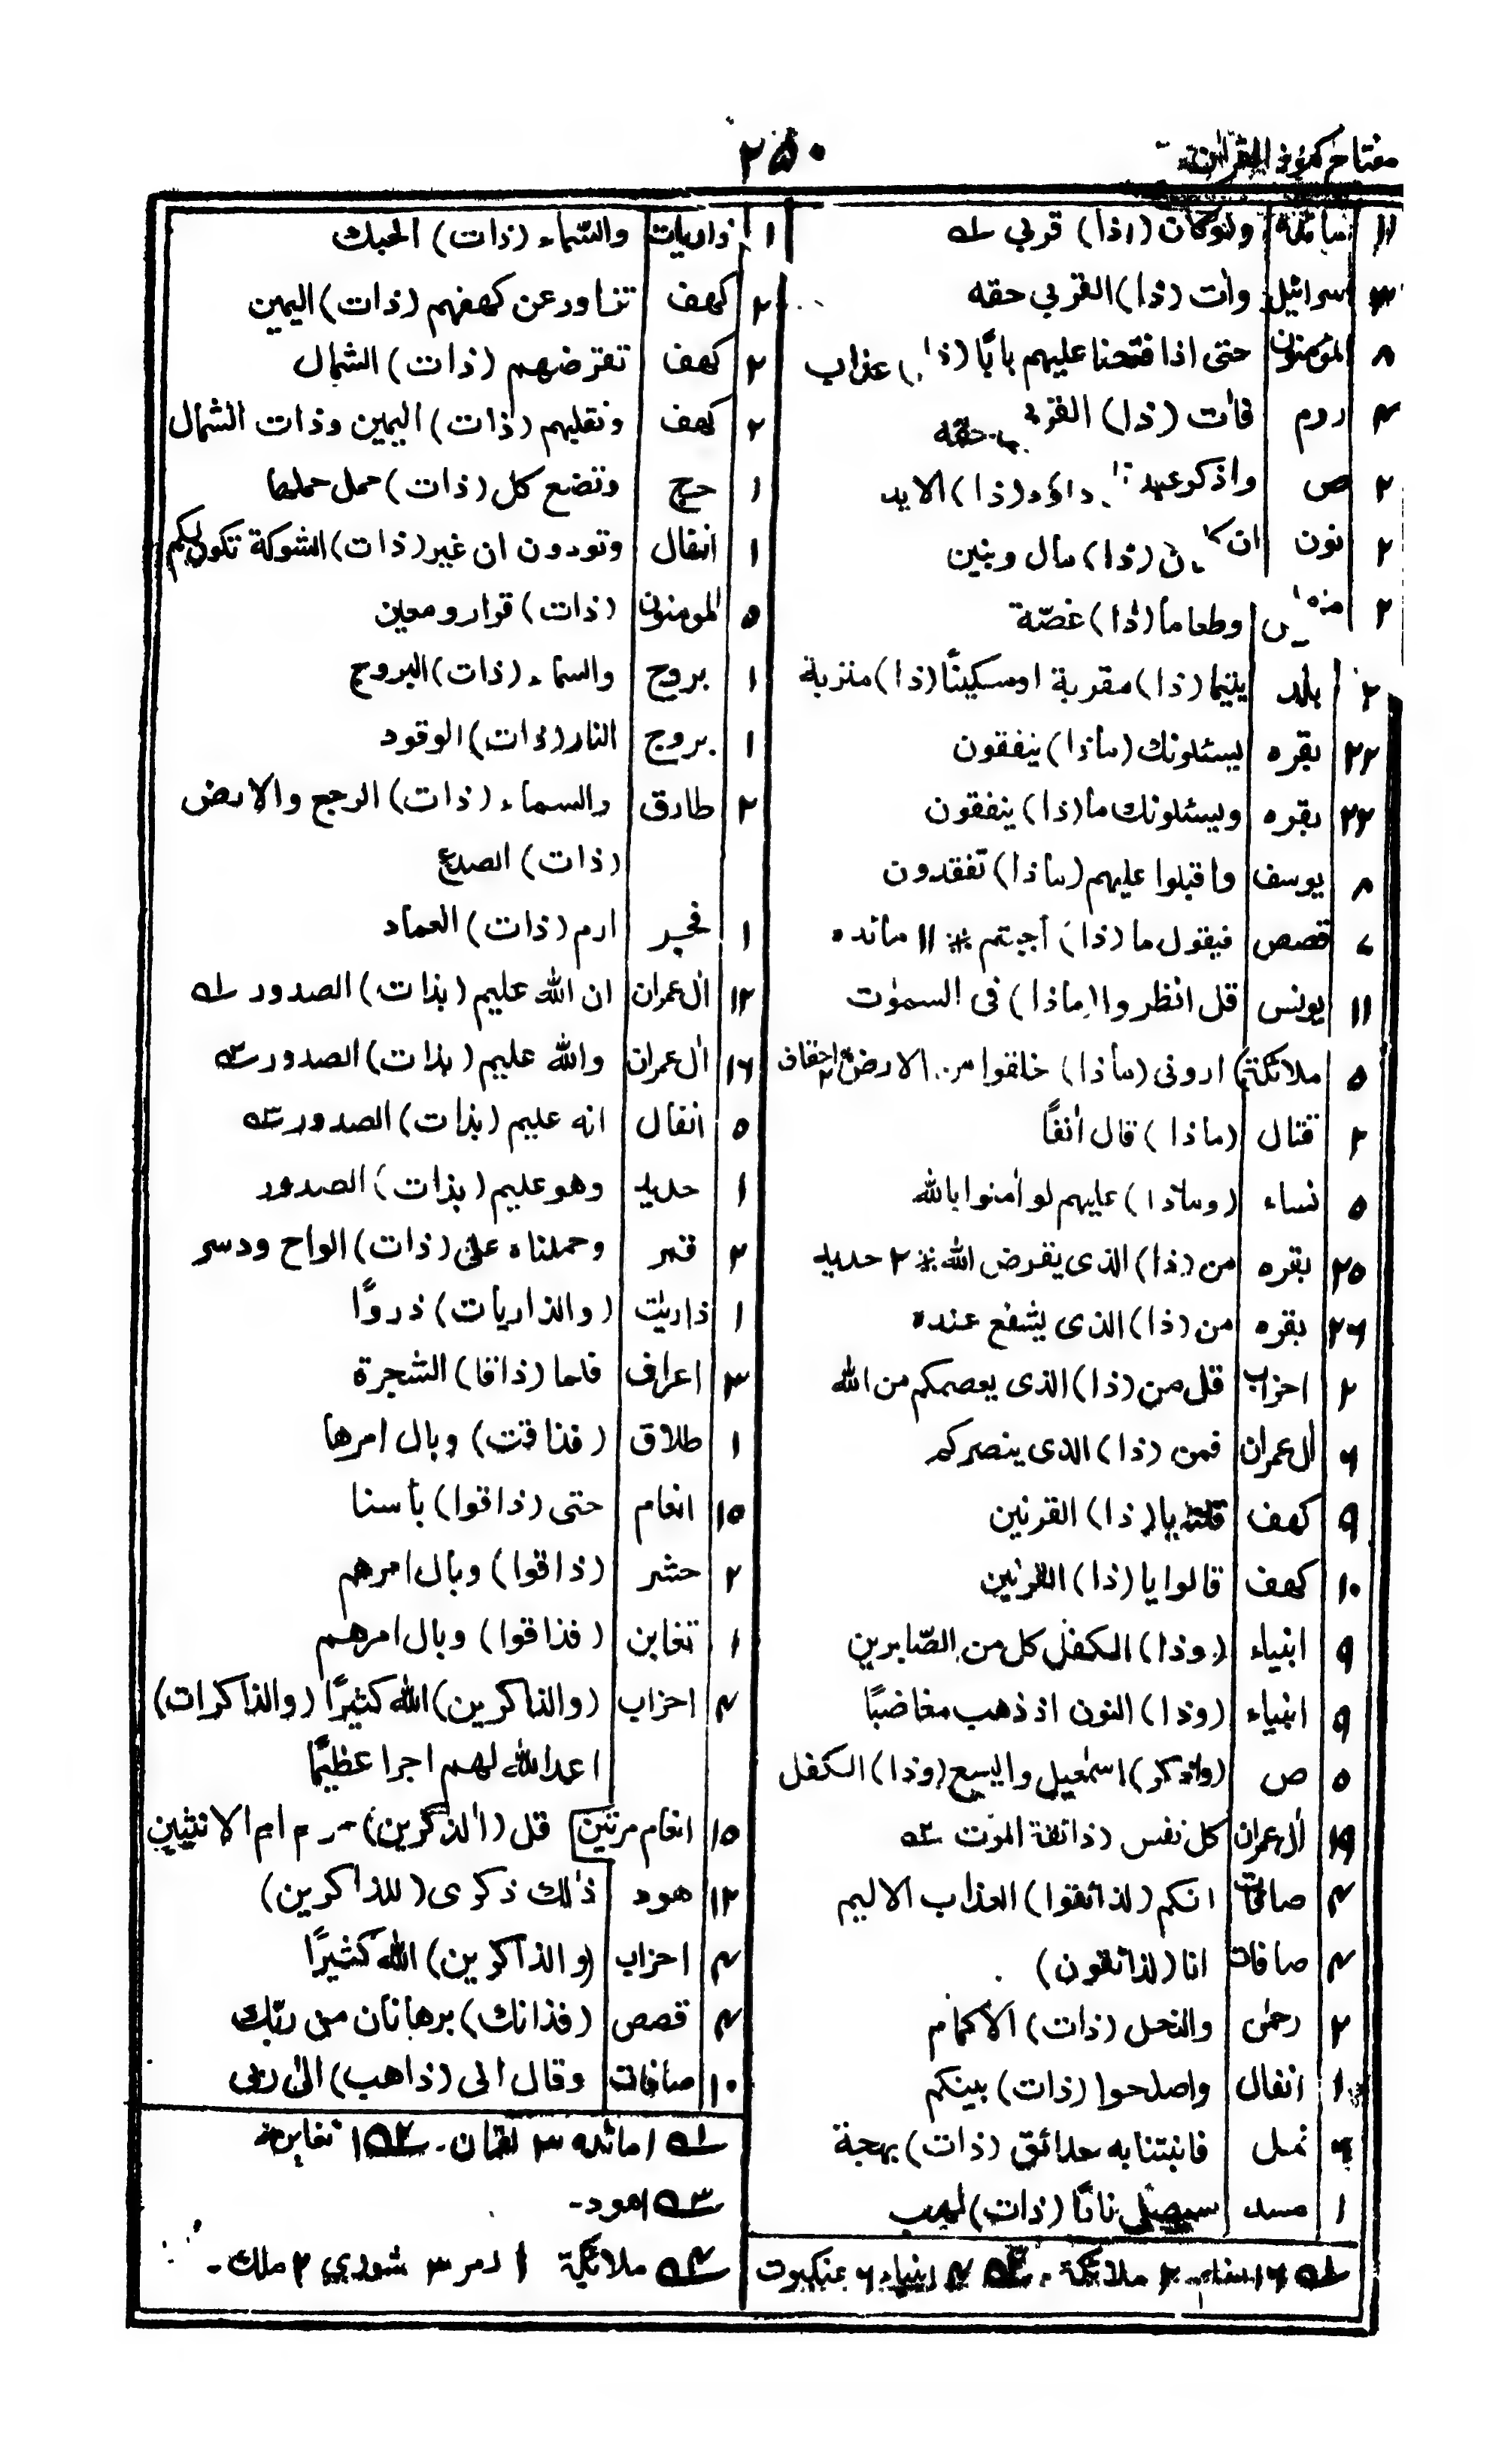 مفتاح كنوز القرآن
٢٥٠
١١ مائدة ولوكان (ذا) قربى
٣ اسرائيل وآت (ذا) القربى حقه
٨ المؤمنون حتى اذا فتحنا عليهم بابًا (ذا) عذاب
٤ روم فآت (ذا) القربى حقه
٢ ص واذكر عبدنا داؤد (ذا) الايد
٢ نون ان كان (ذا) مال وبنين
٢ وطعاما (ذا) غصّة
٢ بلد يتيما (ذا) مقربة اومسكينًا (ذا) متربة
٢٢ بقره يسئلونك (ماذا) ينفقون
٢٢ بقره ويسئلونك ما(ذا) ينفقون
٨ يوسف واقبلوا عليهم (ماذا) تفقدون
٧ قصص فيقول ما (ذا) أجبتم * ١١ مائده
١١ يونس قل انظروا (ماذا) فى السمٰوٰت
٥ ملائكة ارونى (ماذا) خلقوا من الارض احقاف
٢ قتال (ماذا) قال اٰنفًا
٥ نساء (وماذا) عليهم لو اٰمنوا بالله
٢٥ بقره من (ذا) الذى يقرض الله * ٢ حديد
٢٦ بقره من (ذا) الذى يشفع عنده
٢ احزاب قل من (ذا) الذى يعصمكم من الله
٦ اٰل عمران فمن (ذا) الذى ينصركم
٩ كهف قلنا يا (ذا) القرنين
١٠ كهف قالوا يا (ذا) القرنين
٩ انبياء (وذا) الكفل كل من الصّابرين
٩ انبياء (وذا) النون اذ ذهب مغاضبًا
٥ ص (واذكر) اسمٰعيل واليسع (وذا) الكفل
١٩ اٰل عمران كل نفس (ذائقة الموت
٤ صافات انكم (لذائقوا) العذاب الاليم
٤ صافات انا (لذائقون)
٢ رحمٰن والنخل (ذات) الأكمام
١ انفال واصلحوا (ذات) بينكم
نمل فانبتنا به حدائق (ذات) بهجة
١ مسد سيصلى نارًا (ذات) لهب
٢ ملائكة ٤ انبياء ٦ عنكبوت
١ ذاريات والسّماء (ذات) الحبك
٢ كهف تزاور عن كهفهم (ذات) اليمين
٢ كهف تقرضهم (ذات) الشمال
٢ كهف ونقلبهم (ذات) اليمين وذات الشمال
١ حج وتضع كل (ذات) حمل حملها
١ انفال وتودون ان غير (ذات) الشوكة تكون لكم
٥ المومنون (ذات) قرار ومعين
١ بروج والسماء (ذات) البروج
١ بروج النار (ذات) الوقود
٢ طارق والسماء (ذات) الرجع والارض
(ذات) الصدع
١ فجر ارم (ذات) العماد
١٢ اٰل عمران ان الله عليم (بذات) الصدور
١٦ اٰل عمران والله عليم (بذات) الصدور
٥ انفال انه عليم (بذات) الصدور
١ حديد وهو عليم (بذات) الصدور
٢ قمر وحملناه على (ذات) الواح ودسر
١ ذاريٰت (والذاريات) ذروًا
٣ اعراف فلما (ذاقا) الشجرة
١ طلاق (فذاقت) وبال امرها
١٥ انعام حتى (ذاقوا) بأسنا
٢ حشر (ذاقوا) وبال امرهم
١ تغابن (فذاقوا) وبال امرهم
٤ احزاب (والذاكرين) الله كثيرًا (والذاكرات)
اعد الله لهم اجرا عظيمًا
١٥ انعام مرتين قل (اٰلذكرين) م ام الانثيين
١٢ هود ذٰلك ذكرى (للذاكرين)
٤ احزاب (والذاكرين) الله كثيرًا
٤ قصص (فذانك) برهانان من ربّك
١٠ صافات وقال انى (ذاهب) الى ربى
١ مائده ٣ لقمان - تغابن
هود -
ملائكة ١ زمر ٣ شورى ٢ ملك -